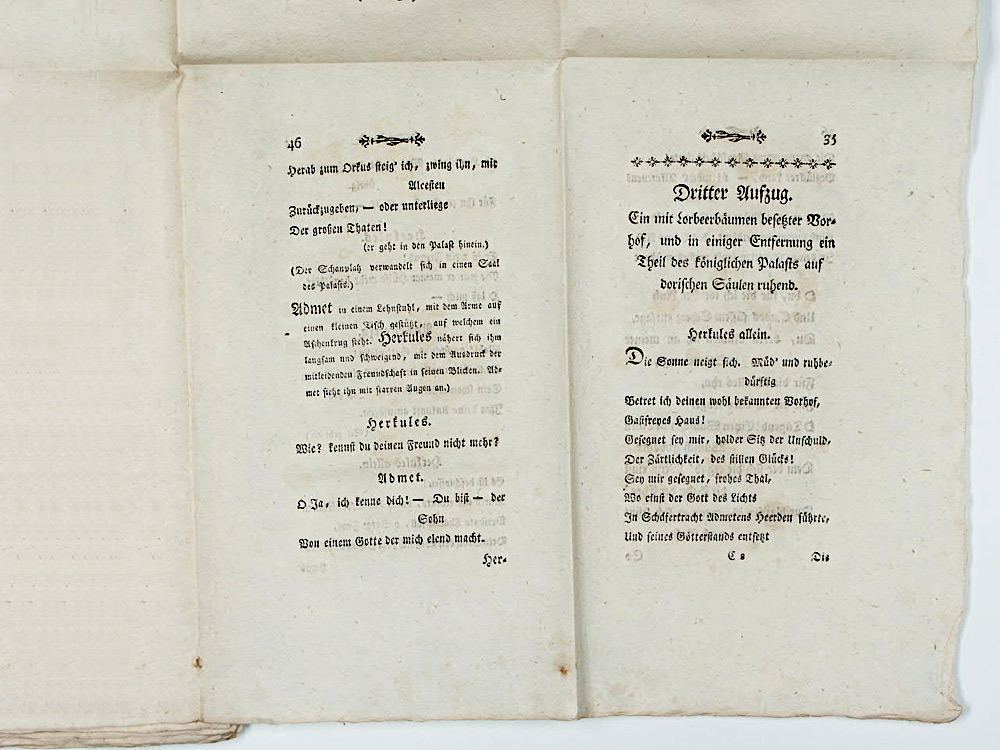 46
Herab zum Orkus steig' ich, zwing ihn, mit
Alcesten
Zurückzugeben, — oder unterliege
Der großen Thaten!
(er geht in den Palast hinein.)
(Der Schauplatz verwandelt sich in einen Saal
des Palasts.)
Admet in einem Lehnstuhl, mit dem Arme auf
einen kleinen Tisch gestützt, auf welchem ein
Aschenkrug steht. Herkules nähert sich ihm
langsam und schweigend, mit dem Ausdruck der
mitleidenden Freundschaft in seinen Blicken. Ad-
met sieht ihn mit starren Augen an.)
Herkules.
Wie? kennst du deinen Freund nicht mehr?
Admet.
O Ja, ich kenne dich! — Du bist — der
Sohn
Von einem Gotte der mich elend macht.
Her-
35
Dritter Aufzug.
Ein mit Lorbeerbäumen besetzter Vor-
hof, und in einiger Entfernung ein
Theil des königlichen Palasts auf
dorischen Säulen ruhend.
Herkules allein.
Die Sonne neigt sich. Müd' und ruhbe-
dürftig
Betret ich deinen wohl bekannten Vorhof,
Gastfreyes Haus!
Gesegnet sey mir, holder Sitz der Unschuld,
Der Zärtlichkeit, des stillen Glücks!
Sey mir gesegnet, frohes Thal,
Wo einst der Gott des Lichts
In Schäfertracht Admetens Heerden führte,
Und seines Götterstands entsetzt
C 2
Die